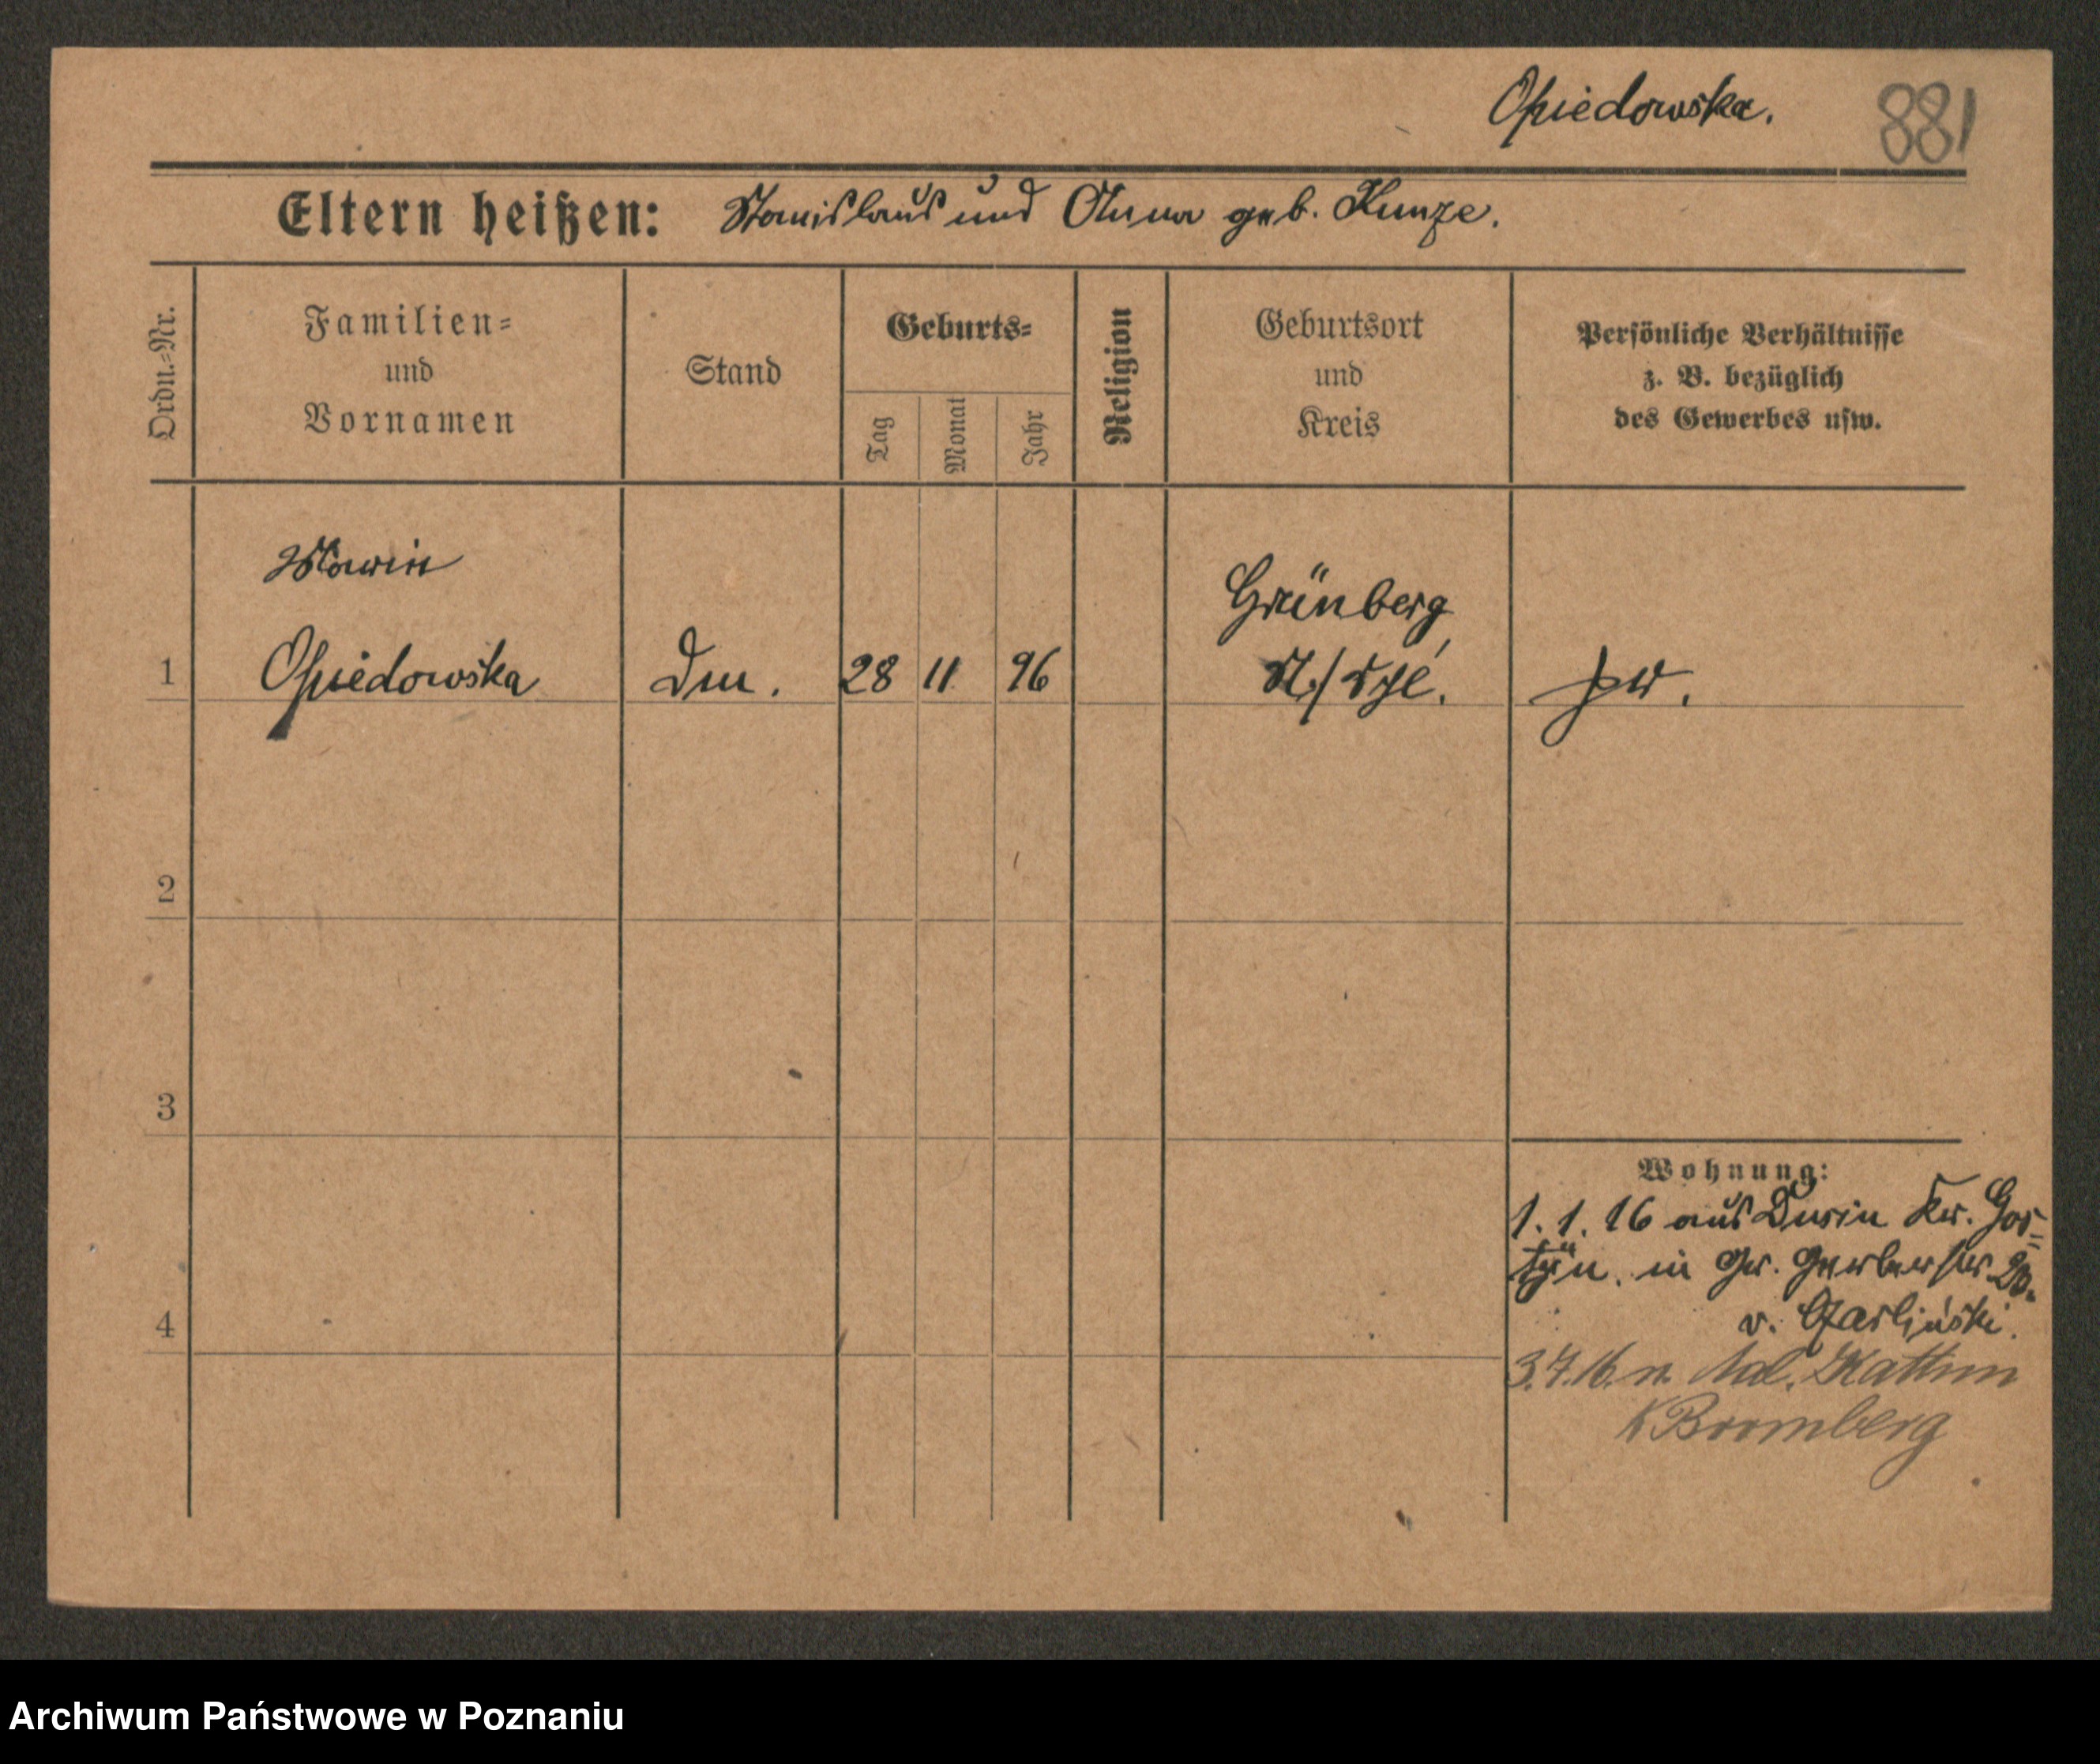 Opiedowska.
881
Eltern heißen: Stanislaus und Anna geb. Kunze.
Ordn.=Nr.
Familien=
und
Vornamen
Stand
Geburts=
Tag
Monat
Jahr
Religion
Geburtsort
und
Kreis
Persönliche Verhältnisse
z. B. bezüglich
des Gewerbes usw.
Marie
1 Opiedowska
28 11 96
Grünberg
2
3
4
Wohnung:
1. 1. 16 aus Dusin Kr. Gos=
tyn. in Gr. Gerberstr
v. Czarliński.
3.7.16. n.
K Bromberg
Archiwum Państwowe w Poznaniu